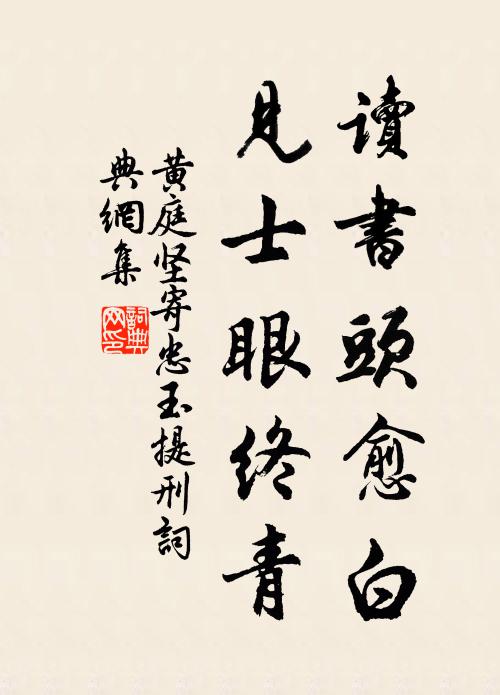 讀書頭愈白
見士眼終青
黄庭坚寄忠玉提刑詞
典網集
詞典网印